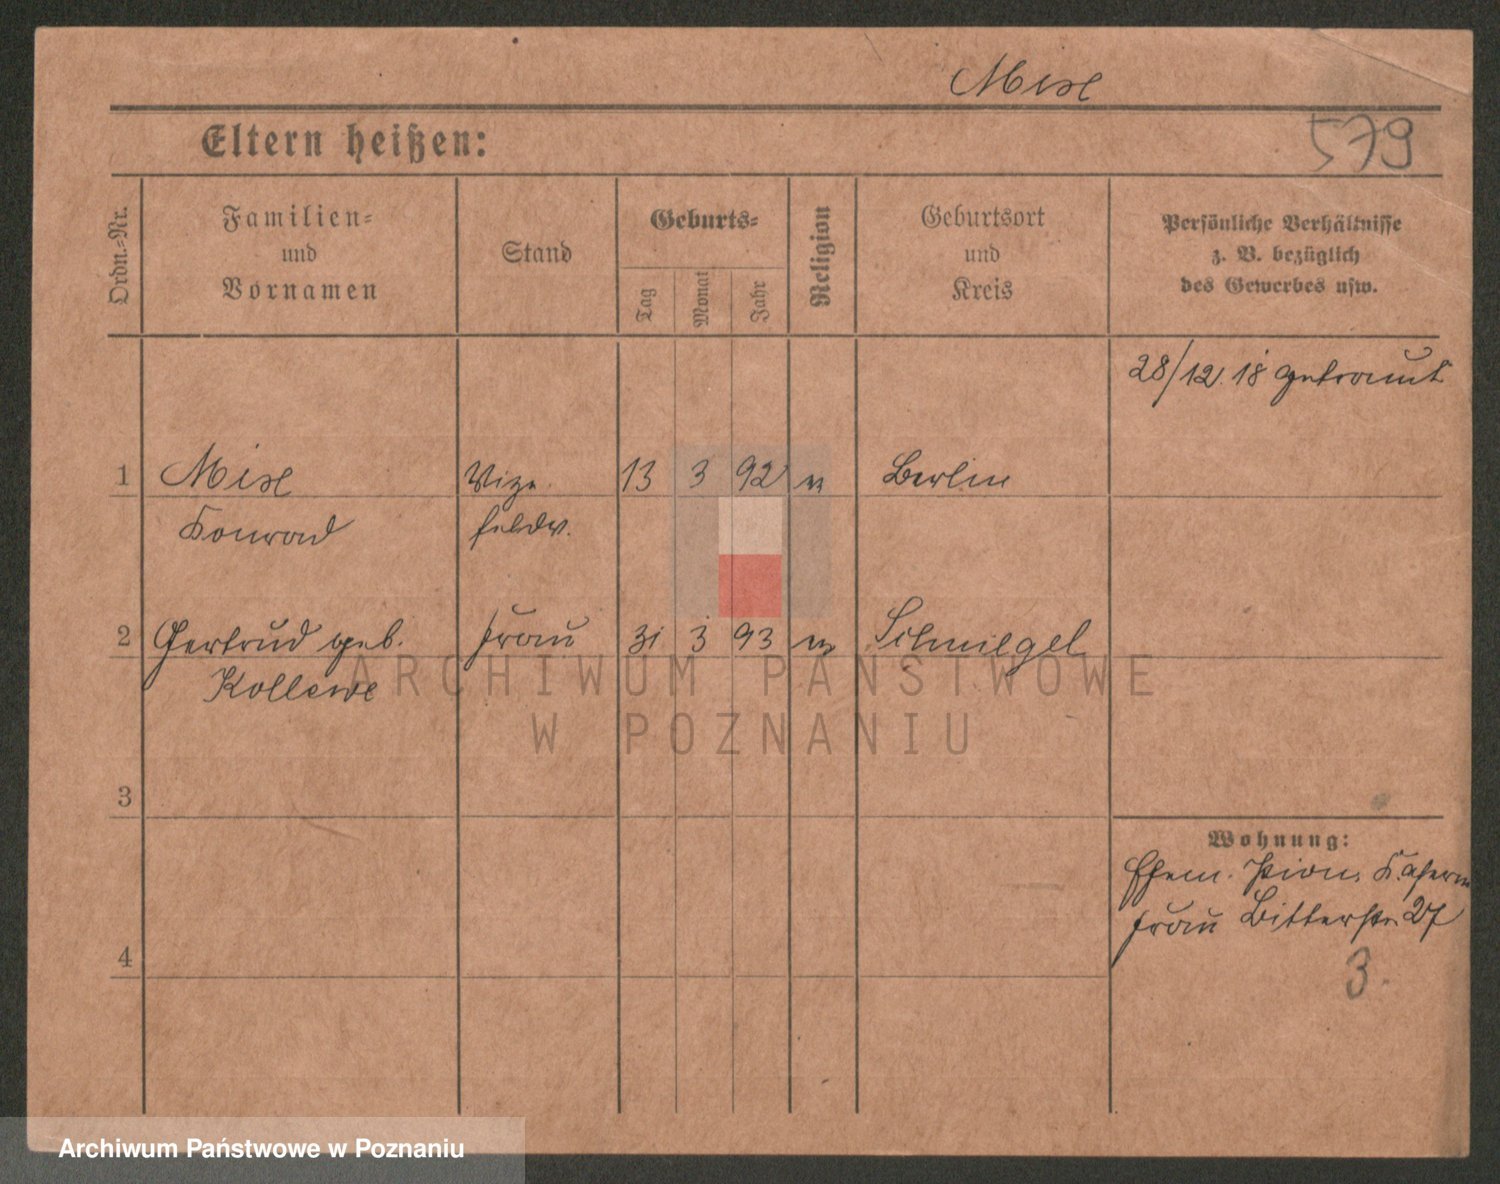 Misl
Eltern heißen:
579
Ordn.-Nr.
Familien-
und
Vornamen
Stand
Geburts-
Tag
Monat
Jahr
Religion
Geburtsort
und
Kreis
Persönliche Verhältnisse
z. B. bezüglich
des Gewerbes usw.
28/12. 18 getraut
1 Misl Vize 13 3 92 Berlin
Konrad feldw.
2 Gertrud geb. Frau 31 3 93 Schmiegel
Kollewe
ARCHIWUM PAŃSTWOWE
W POZNANIU
3
Wohnung:
Ehem. Pion. Kaserne
Frau Bitterstr. 27
3.
4
Archiwum Państwowe w Poznaniu